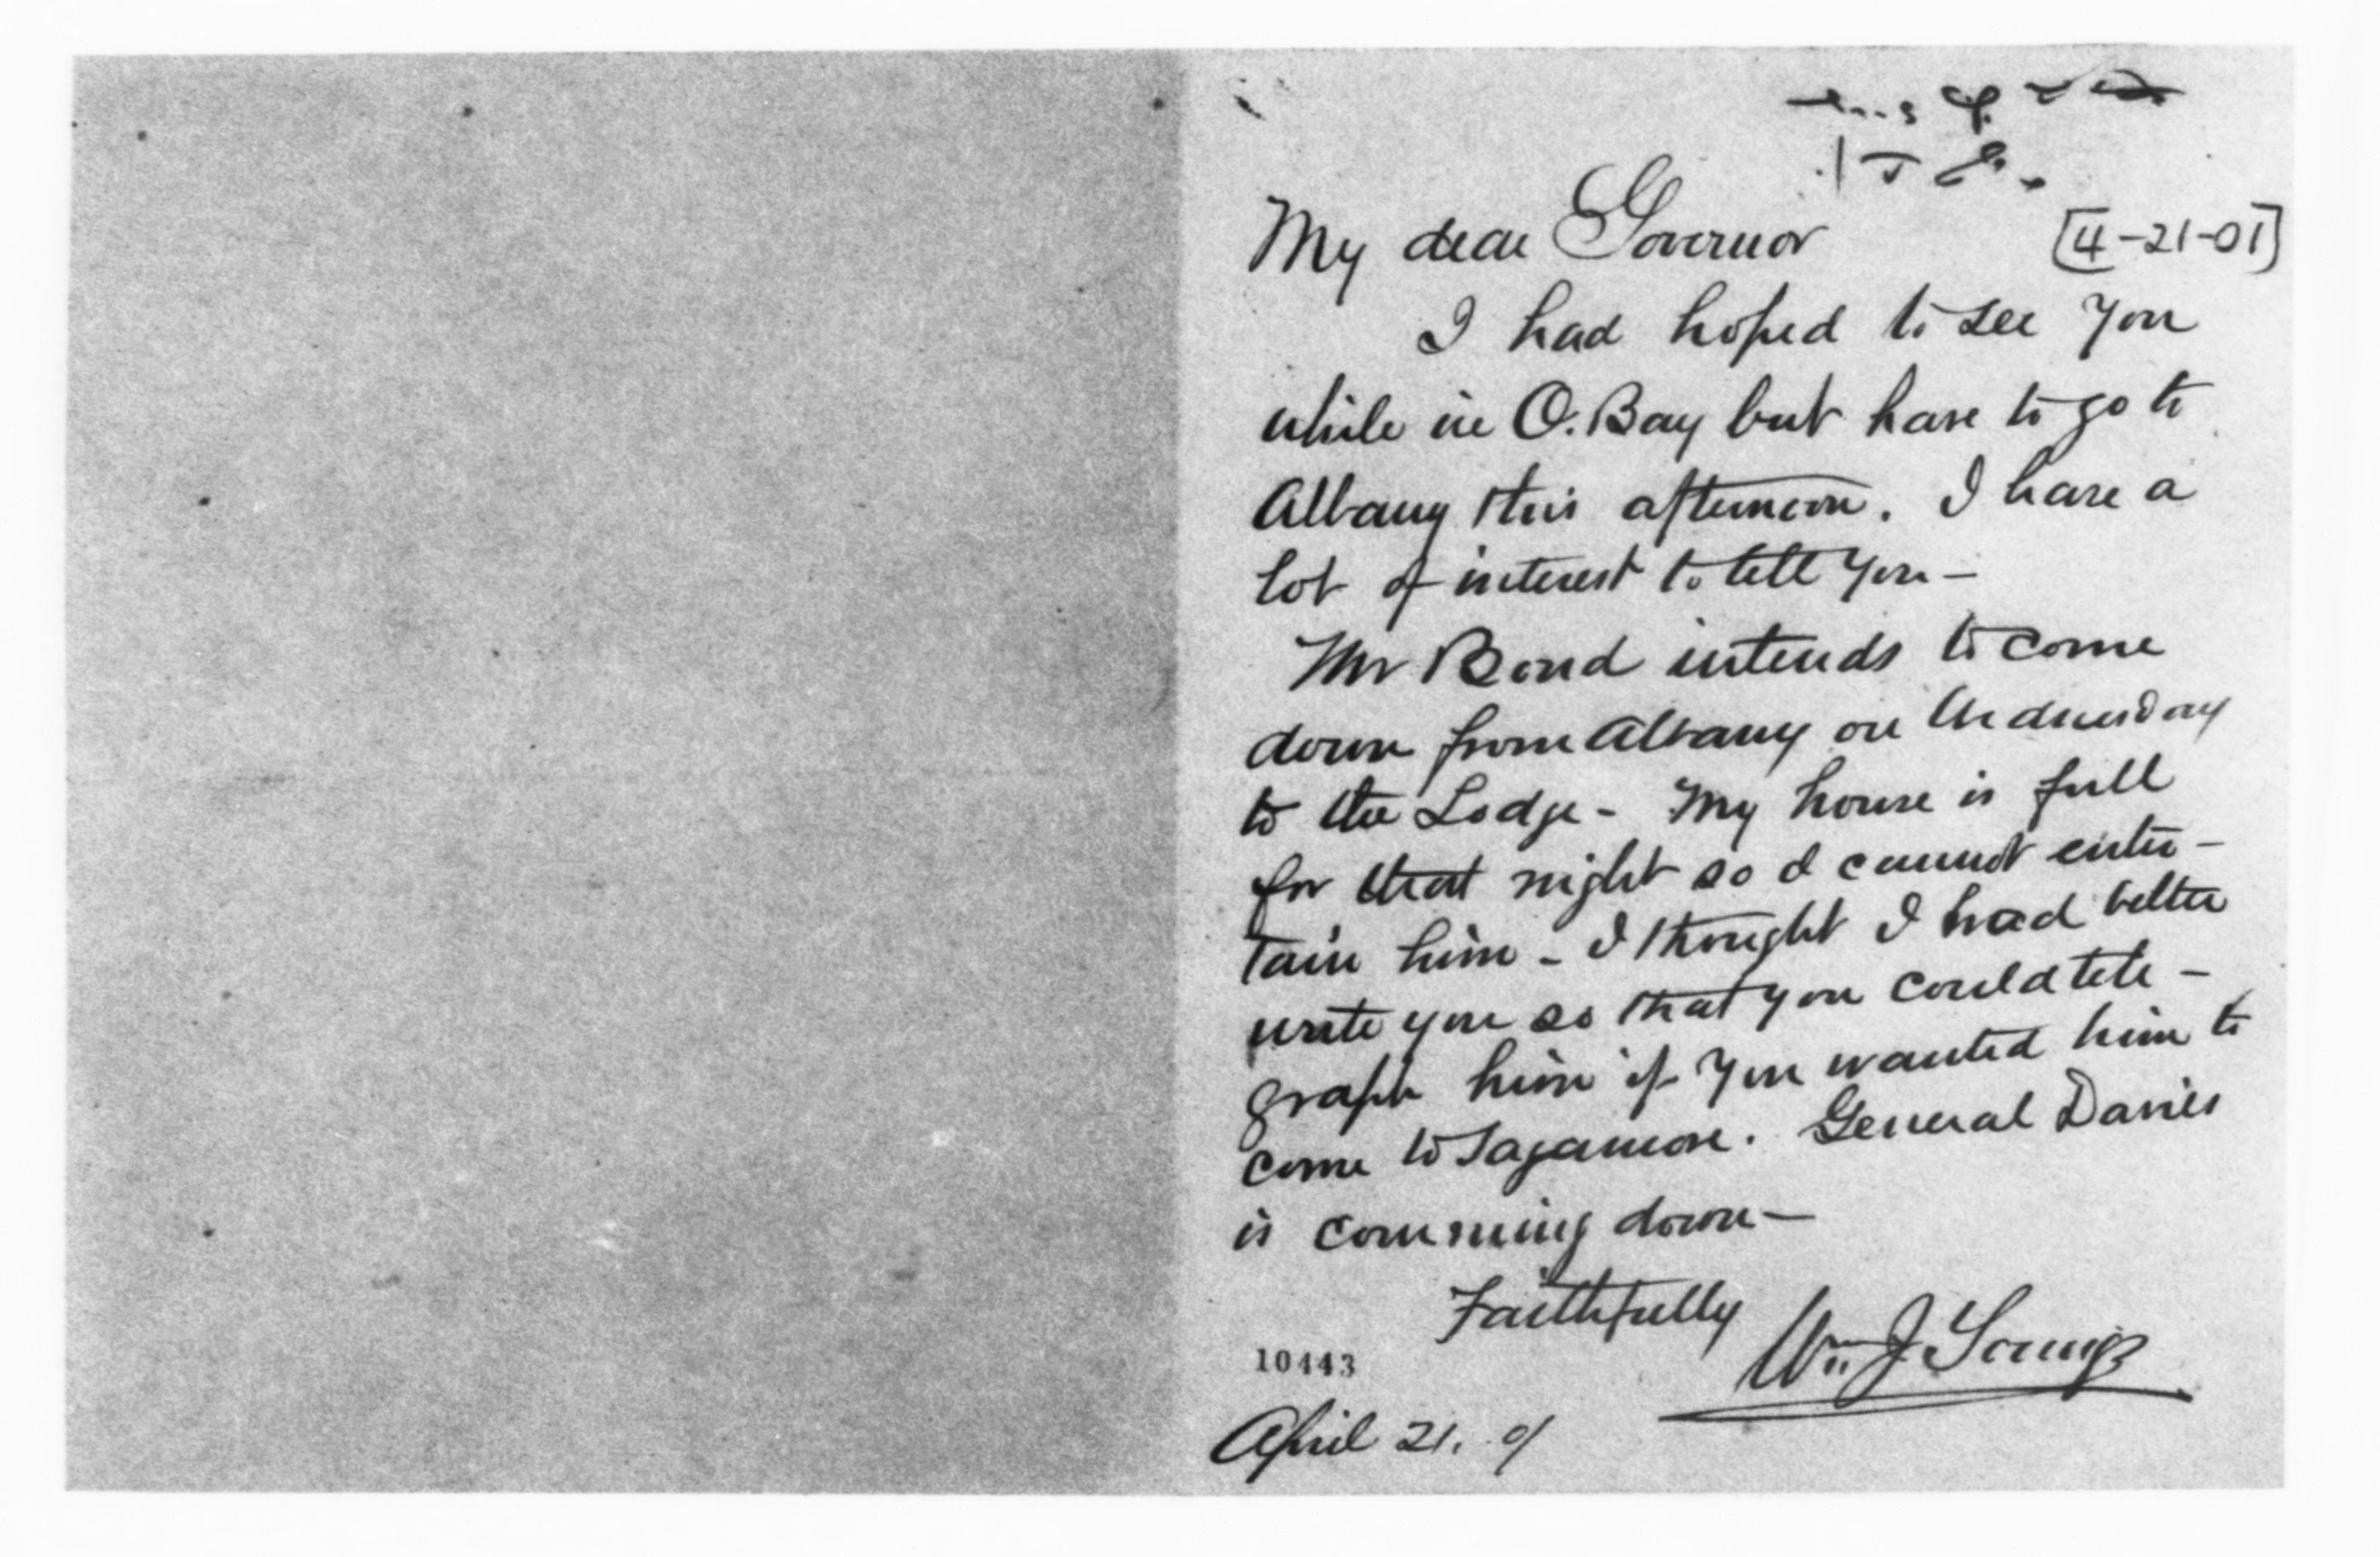 My dear Governor
[4-21-01]
I had hoped to see you
while in O. Bay but have to go to
Albany this afternoon. I have a
lot of interest to tell you -
Mr Bond intends to come
down from Albany on Wednesday
to the Lodge - My house is full
for that night so I cannot enter-
tain him - I thought I had better
write you so that you could tele-
graph him if you wanted him to
come to Sagamore. General Davies
is comming down -
Faithfully
Wm J Young
10443
April 21. 01